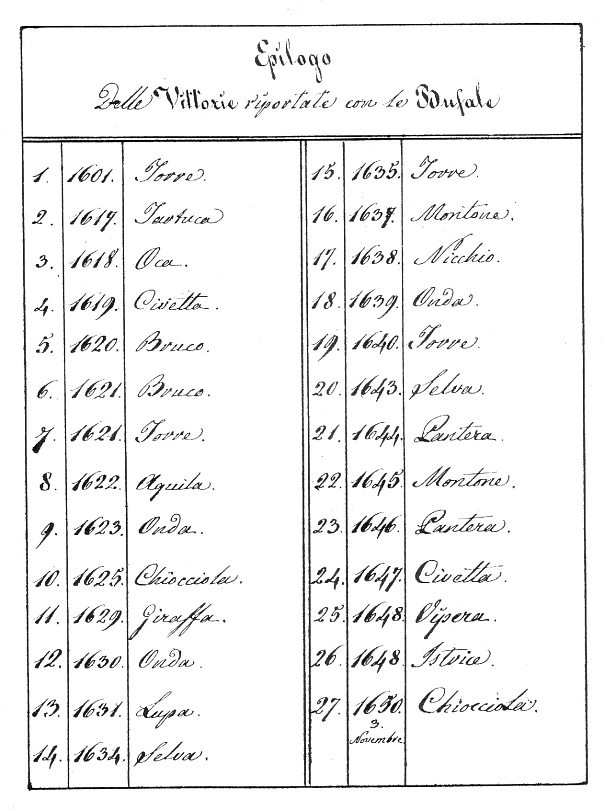 Epilogo
Delle Vittorie riportate con le Bufale
1. 1601. Torre.
2. 1617. Tartuca
3. 1618. Oca.
4. 1619. Civetta.
5. 1620. Bruco.
6. 1621. Bruco.
7. 1621. Torre.
8. 1622. Aquila.
9. 1623. Onda.
10. 1625. Chiocciola.
11. 1629. Giraffa.
12. 1630. Onda.
13. 1631. Lupa.
14. 1634. Selva.
15. 1635. Torre.
16. 1637. Montone.
17. 1638. Nicchio.
18. 1639. Onda.
19. 1640. Torre.
20. 1643. Selva.
21. 1644. Pantera.
22. 1645. Montone.
23. 1646. Pantera.
24. 1647. Civetta.
25. 1648. Vipera.
26. 1648. Istrice.
27. 1650. Chiocciola.
3.
Novembre.